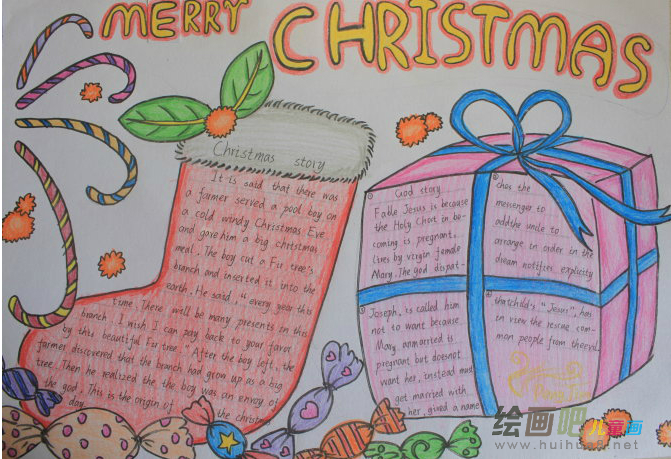 MERRY CHRISTMAS
Christmas story
It is said that there was
a farmer served a pool boy on
a cold windy Christmas Eve
and gave him a big christmas
meal. The boy cut a Fir tree's
branch and inserted it into the
earth. He said, "every year this
time. There will be many presents in this
branch. I wish I can pay back to your favor
by this beautiful Fir tree." After the boy left, the
farmer discovered that the branch had grow up as a big
tree. Then he realized the the boy was an envoy of
the god. This is the origin of the christmas
day
① God story
Fable Jesus is because
the Holy Ghost in be-
coming is pregnant,
lives by virgin female
Mary. The god dispat-
② ches the
messenger to
add the uncle to
arrange in order in the
dream notifies explicity
③ Joseph, is called him
not to want because
Mary unmarried is
pregnant but doesnot
want her, instead must
get married with
her, gived a name
thatchild's "Jesus", has
in view the rescue com-
mon people from the evil
绘画吧 儿童画
www.huihua8.net